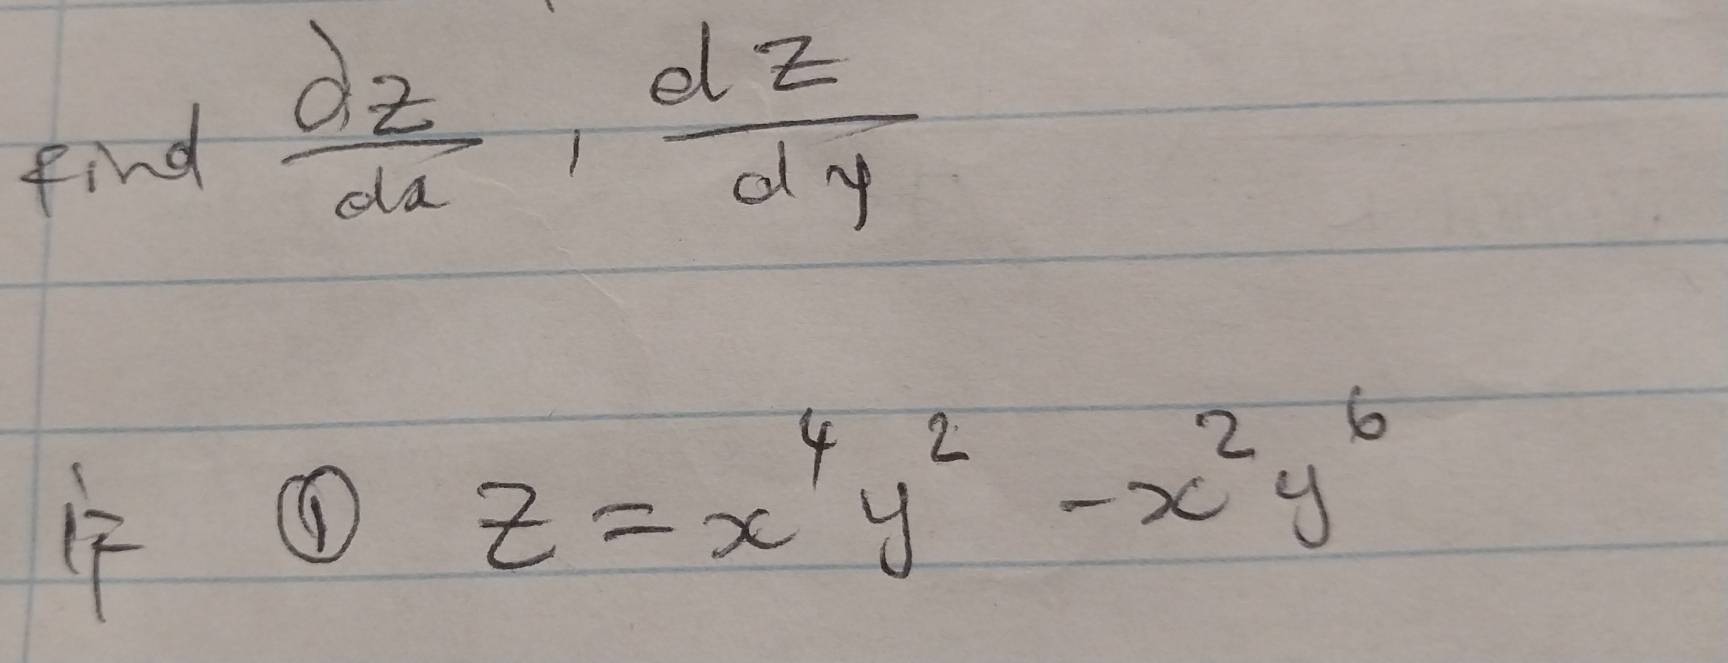 find dz/dx , dz/dy
if ① z = x⁴y² - x²y⁶